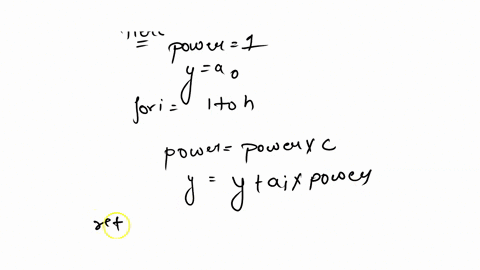 power = 1
y = a0
for i = 1 to n
power = power x c
y = y + ai x power
ret